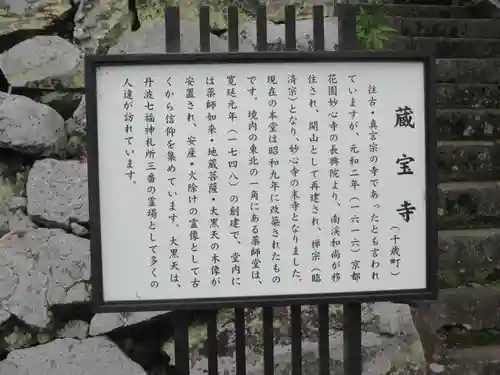 蔵宝寺（千歳町）
往古・真言宗の寺であったとも言われ
ていますが、元和二年（一六一六）京都
花園妙心寺の長興院より、南渓和尚が移
住され、開山として再建され、禅宗（臨
済宗）となり、妙心寺の末寺となりました。
現在の本堂は昭和九年に改築されたもの
です。境内の東北の一角にある薬師堂は、
寛延元年（一七四八）の創建で、堂内に
は薬師如来・地蔵菩薩・大黒天の木像が
安置され、安産・火除けの霊像として古
くから信仰を集めています。大黒天は、
丹波七福神札所三番の霊場として多くの
人達が訪れています。